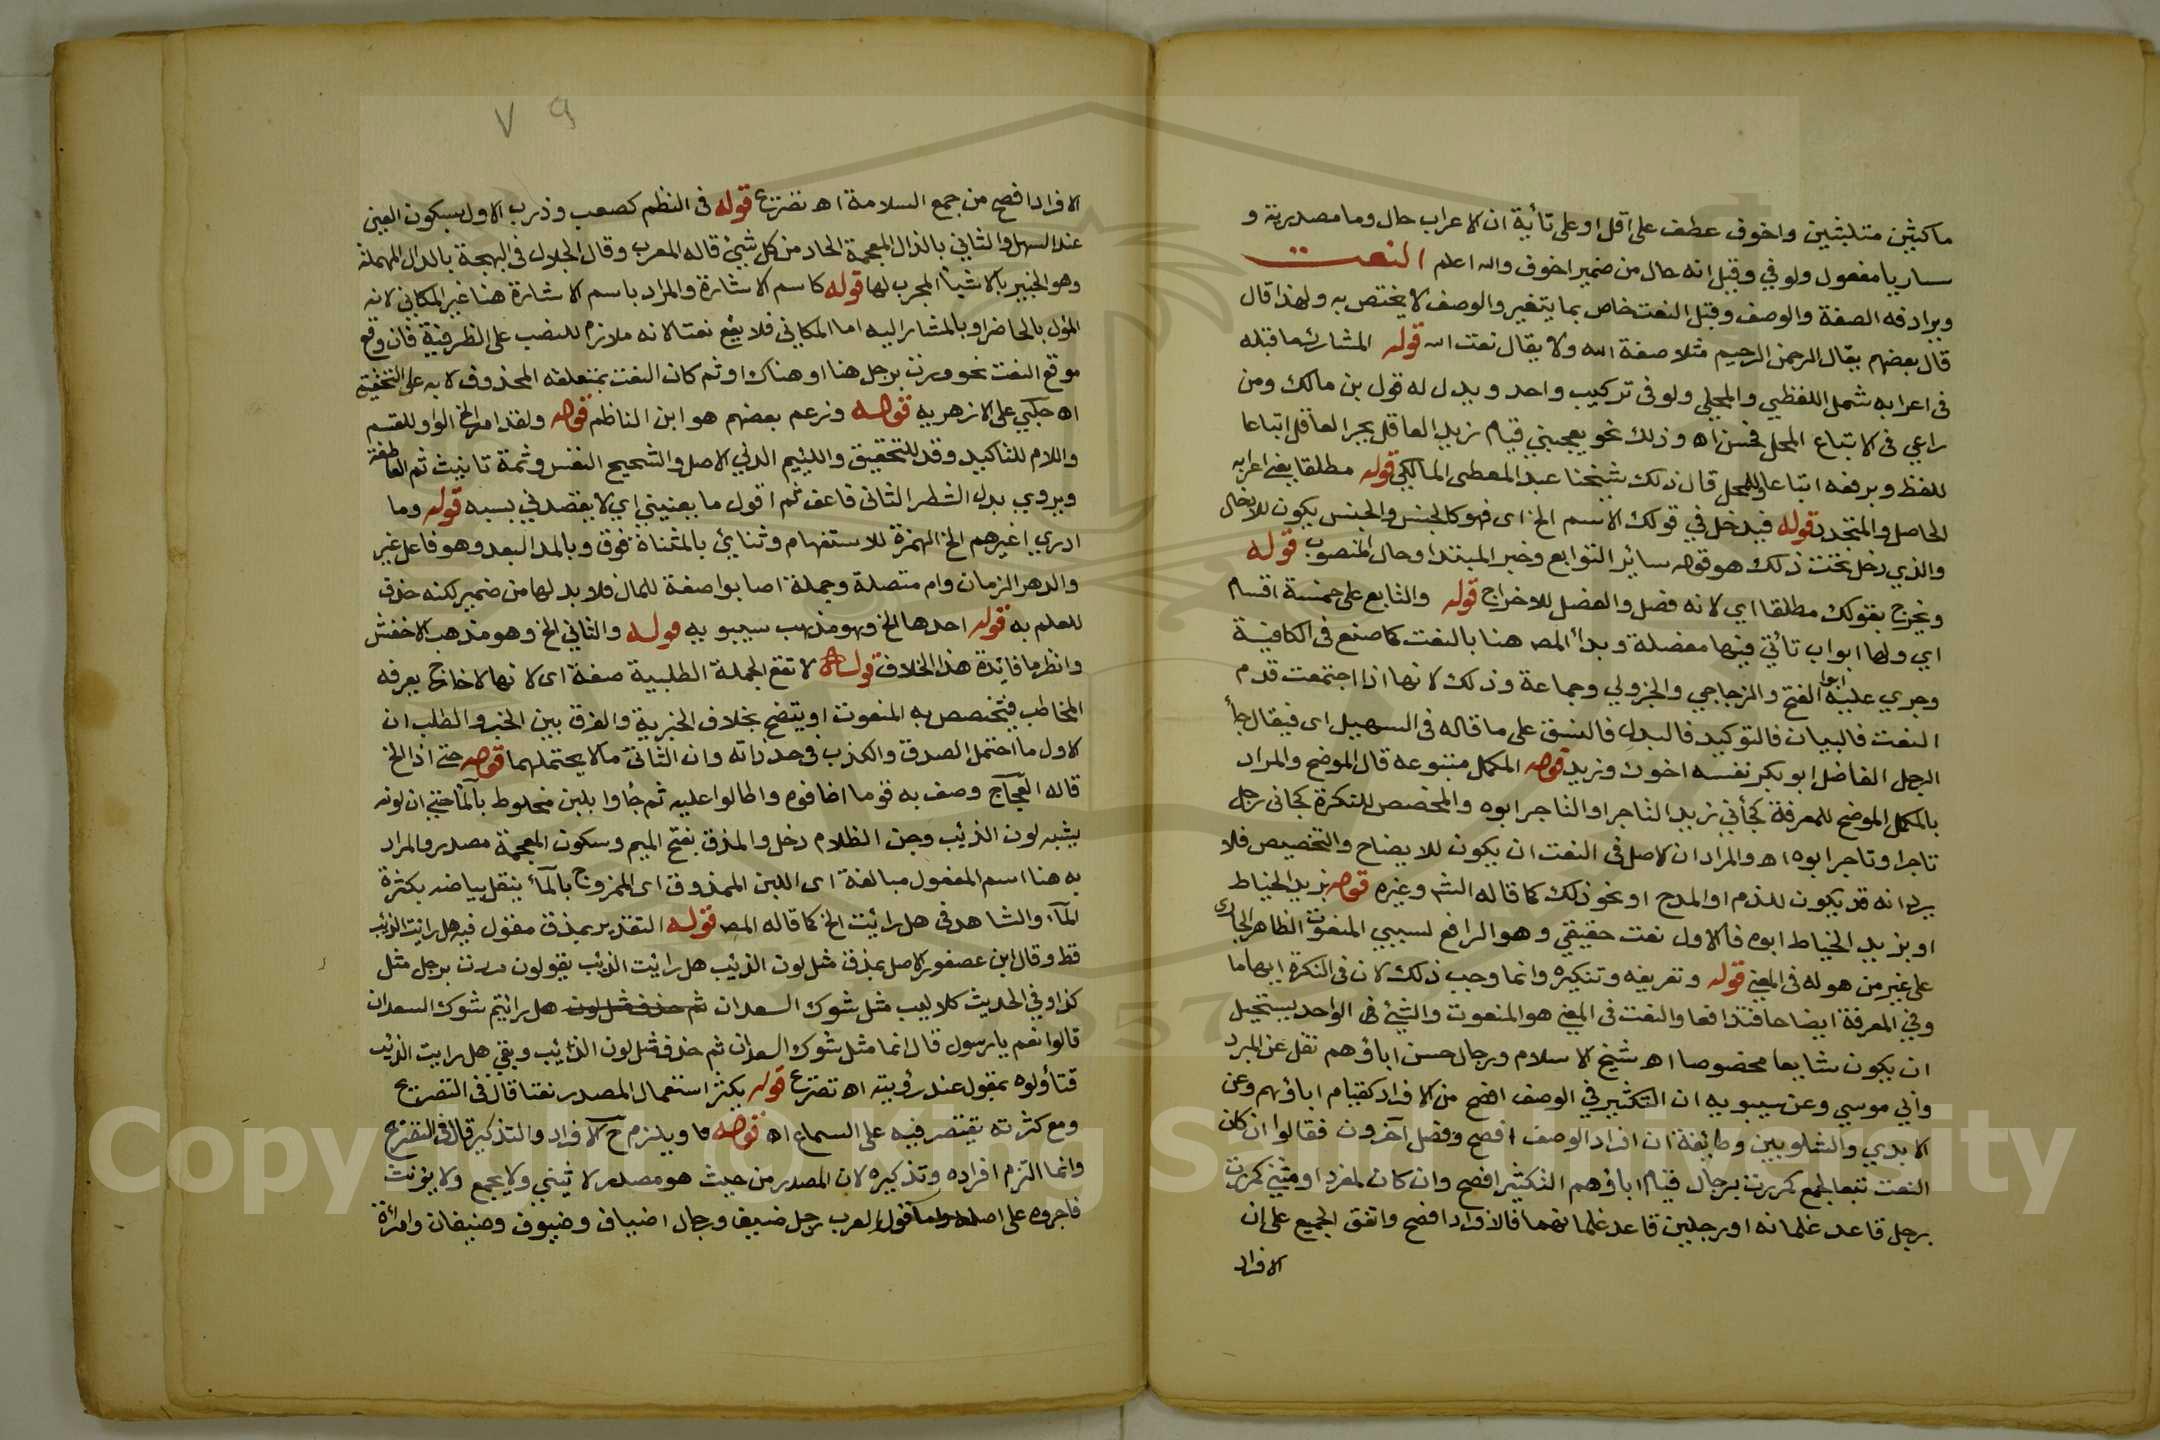 ماكثين متلبثين واخوف عطف على اقل او على تأية ان الاعراب حال وما مصدرية و
ساريا مفعول ولو في وقيل انه حال من ضمير اخوف والله اعلم النعت
ويرادفه الصفة والوصف وقيل النعت خاص بما يتغير والوصف لا يختص به ولهذا قال
قال بعضهم يقال الرحمن الرحيم مثلا صفة الله ولا يقال نعت الله قوله المشارك ما قبله
في اعرابه شمل اللفظي والمحلي ولو في تركيب واحد ويدل له قول بن مالك ومن
راعى في الاتباع المحل فحسن اه وذلك نحو يعجبني قيام زيد العاقل بجر العاقل اتباعا
للفظ وبرفعه اتباعا للمحل قال ذلك شيخنا عبد المعطى المالكي قوله مطلقا يعني اعرابه
الحاصل والمتجدد قوله فيدخل في قولك الاسم الخ اى فهو كالجنس والجنس يكون للادخال
والذي دخل تحت ذلك هو قوله سائر التوابع وخبر المبتدا وحال المنصوب قوله
ويخرج بقولك مطلقا اي لانه فصل والفصل للاخراج قوله والتابع على خمسة اقسام
اي ولها ابواب تأتي فيها مفصلة وبدأ المص هنا بالنعت كما صنع في الكافية
وجرى عليه ابوا الفتح والزجاجي والجزولي وجماعة وذلك لانها اذا اجتمعت قدم
النعت فالبيان فالتوكيد فالبدل فالنسق على ما قاله في التسهيل اى فيقال جأ
الرجل الفاضل ابو بكر نفسه اخوك وزيد قوله المكمل متبوعه قال الموضح والمراد
بالمكمل الموضح للمعرفة كجأني زيد التاجر او التاجر ابوه والمخصص للنكرة كجاني رجل
تاجر او تاجر ابوه اه والمراد ان الاصل في النعت ان يكون للايضاح والتخصيص فلا
يرد انه قد يكون للذم او المدح او نحو ذلك كما قاله الش وغيره قوله بزيد الخياط
او بزيد الخياط ابوه فالاول نعت حقيقي وهو الرافع لسببي المنعوت الظاهر الجارى
على غير من هو له في المعنى قوله وتعريفه وتنكيره وانما وجب ذلك لان في النكرة ابهاما
وفي المعرفة ايضاحا فتدافعا والنعت في المعنى هو المنعوت والشيئ في الواحد يستحيل
ان يكون شايعا مخصوصا اه شيخ الاسلام ورجال حسن اباؤهم نقل عن المبرد
وأبي موسي وعن سيبويه ان التكثير في الوصف افصح من الافراد كقيام اباؤهم وعن
الابدي والشلوبين وطائفة ان افراد الوصف افصح وفصل آخرون فقالوا ان كان
النعت تبعا لجمع كمررت برجال قيام اباؤهم التكثير افصح وان كان لمفرد او مثنى كمررت
برجل قاعد غلمانه او رجلين قاعد غلمانهما فالافراد افصح واتفق الجميع على ان
الافراد
٧٩
الافراد افصح من جمع السلامة اه تصريح قوله في النظم كصعب وذرب الاول بسكون العين
عند السهل والثاني بالذال المعجمة الحاد من كل شيئ قاله المعرب وقال الجلال في البهجة بالدال المهملة
وهو الخبير بالاشيأ المجرب لها قوله كاسم الاشارة والمراد باسم الاشارة هنا غير المكاني لانه
المؤل بالحاضر او بالمشار اليه اما المكاني فلا يقع نعتا لانه ملازم للنصب على الظرفية فان وقع
موقع النعت نحو مررت برجل هنا او هناك او ثم كان النعت بمتعلقه المحذوف لا به على التحقيق
اه حلبي على الازهريه قوله وزعم بعضهم هو ابن الناظم قوله ولقد امر الخ الواو للقسم
واللام للتأكيد وقد للتحقيق واللئيم الدني الاصل والشحيح النفس وثمة تانيث ثم العاطفة
ويروى بدل الشطر الثاني فاعف ثم اقول ما يعنيني اي لا يقصدني بسبه قوله وما
ادرى اغيرهم الخ الهمزة للاستفهام وتنائ بالمثناة فوق وبالمد البعد وهو فاعل غير
والدهر الزمان وام متصلة وجملة اصابوا صفة للمال فلا بد لها من ضمير لكنه حذف
للعلم به قوله احدها الخ وهو مذهب سيبويه قوله والثاني الخ وهو مذهب الاخفش
وانظر ما فائدة هذا الخلاف قوله لا تقع الجملة الطلبية صفة اى لانها لا خارج يعرفه
المخاطب فيتخصص به المنعوت او يتضح بخلاف الخبرية والفرق بين الخبر والطلب ان
الاول ما احتمل الصدق والكذب في حد ذاته وان الثاني ما لا يحتملهما قوله حتى اذا الخ
قاله العجاج وصف به قوما اضافوه واطالوا عليه ثم جاوا بلبن مخلوط بالمآ حتى ان لونه
يشبه لون الذئب وجن الظلام دخل والمذق بفتح الميم وسكون المعجمة مصدر والمراد
به هنا اسم المفعول مبالغة اى اللبن الممذوق اى الممزوج بالمأ ينقل بياضه بكثرة
المآء والشاهد في هل رايت الخ كما قاله المص قوله التقدير بمذق مقول فيه هل رايت الذئب
قط وقال ابن عصفور الاصل بمذق مثل لون الذئب هل رايت الذئب يقولون مررت برجل مثل
كذا وفي الحديث كلاليب مثل شوك السعدان ثم حذف مثل لون هل رايتم شوك السعدان
قالوا نعم يا رسول قال انما مثل شوك السعدان ثم حذف مثل لون الذئب وبقي هل رايت الذئب
فتأولوه بمقول عند رؤيته اه تصريح قوله يكثر استعمال المصدر نعتا قال في التصريح
ومع كثرته يقتصر فيه على السماع اه قوله ويلزم ح الافراد والتذكير قال في التصريح
وانما التزم افراده وتذكيره لان المصدر من حيث هو مصدر لا يثني ولا يجمع ولا يؤنث
فاجروه على اصله واما قول العرب رجل ضيف ورجال اضياف وضيوف وضيفان وامرأة
Copyright © King Saud University
1957